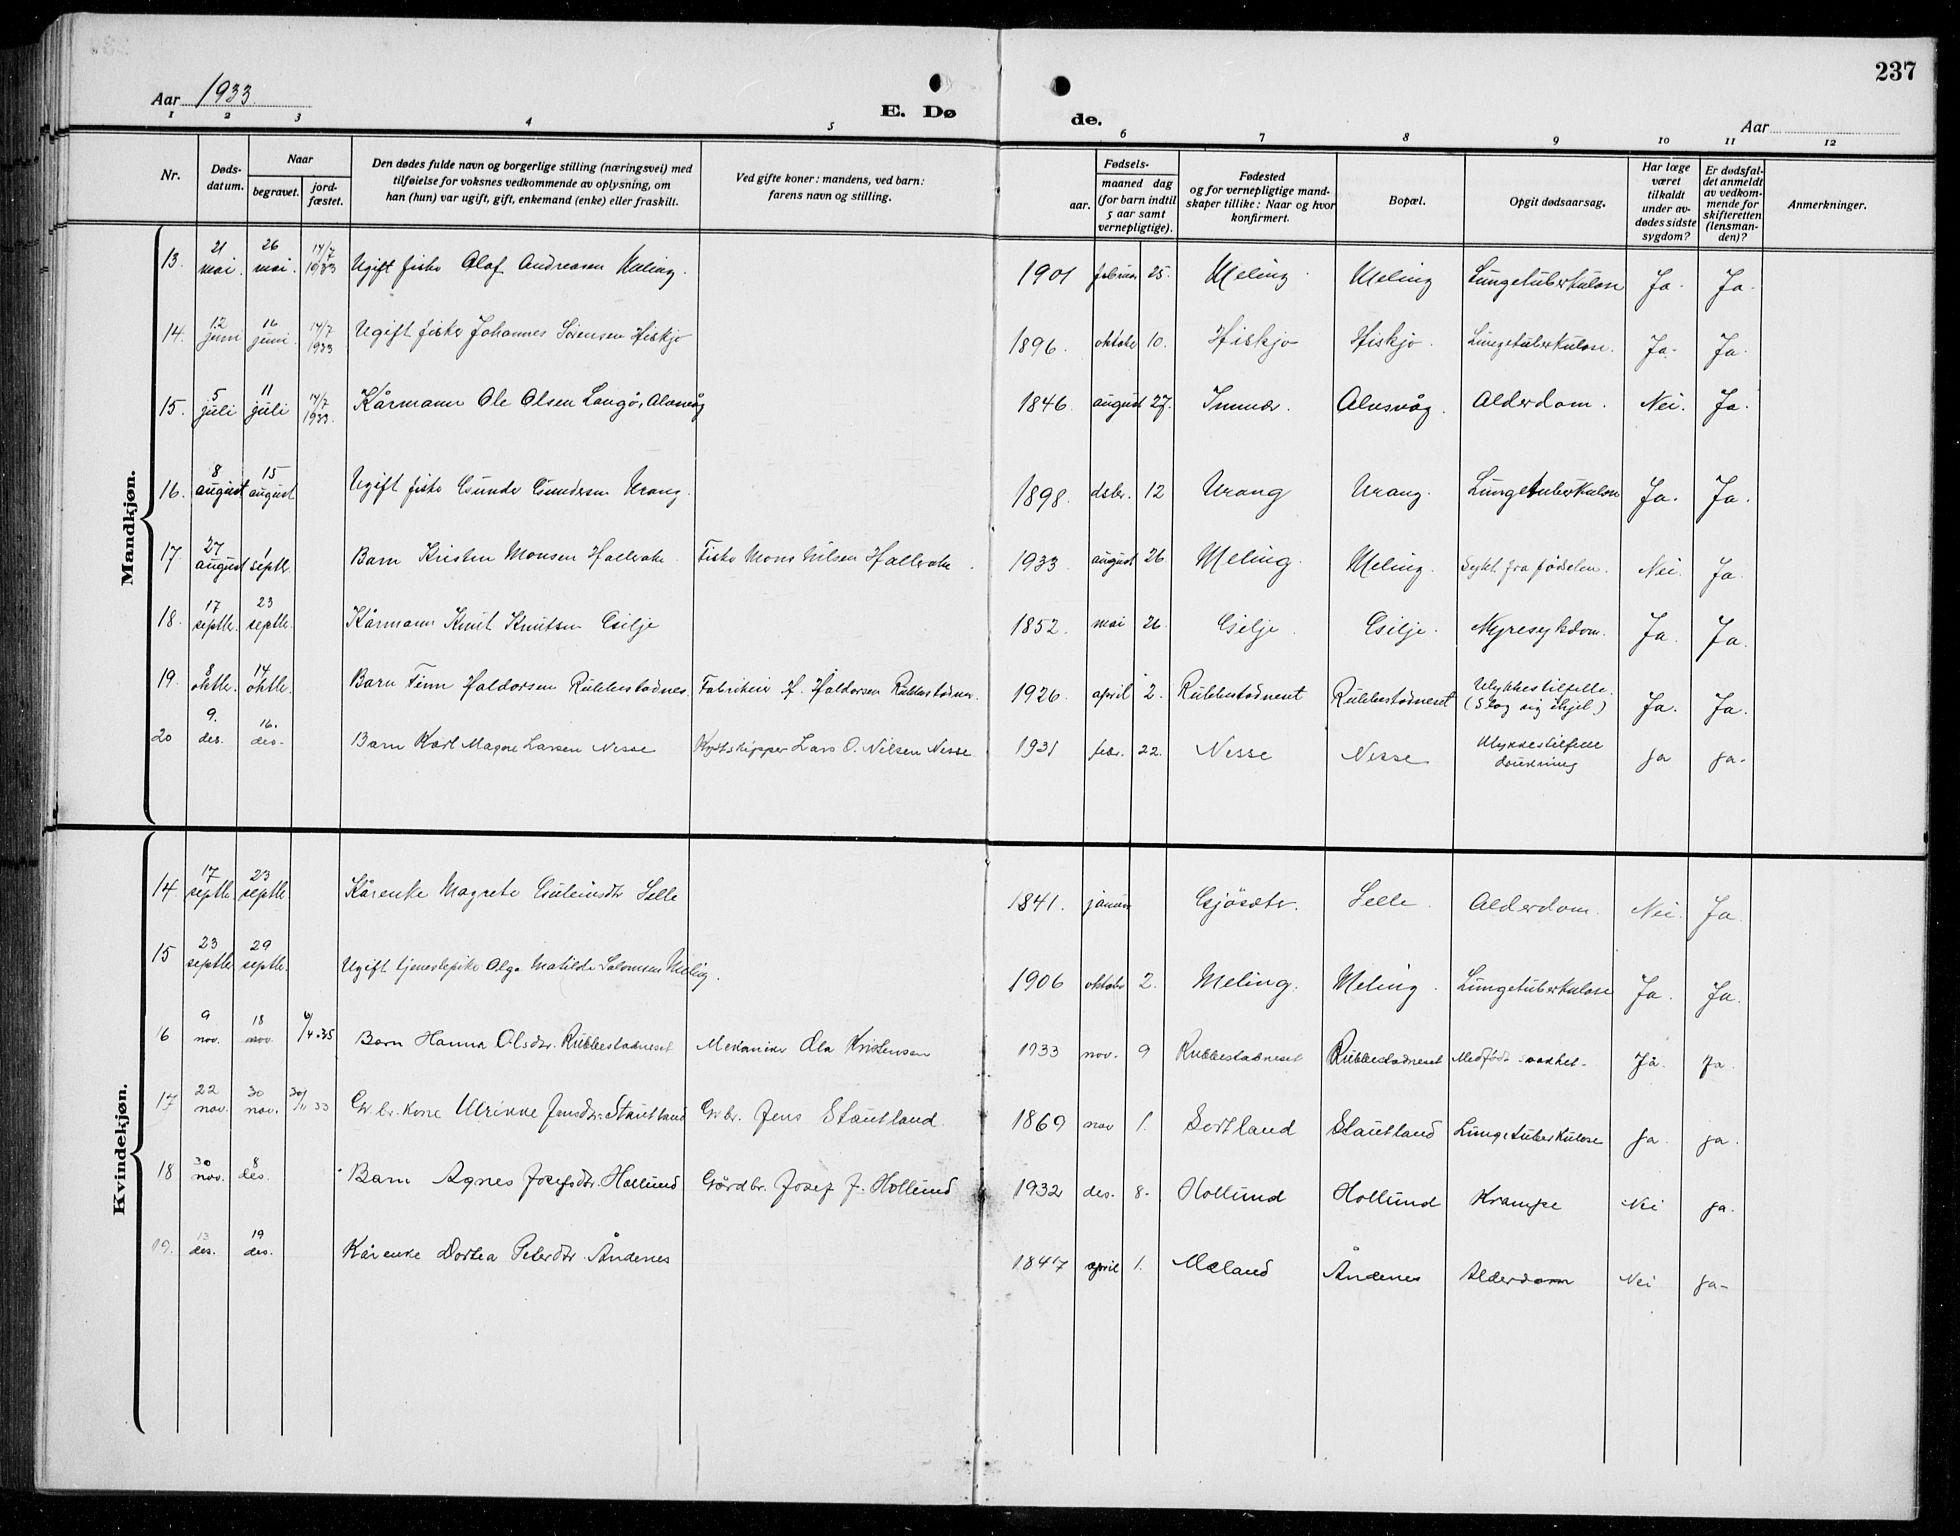 237
Aar 1933.
E. Dø de.
Aar
1 2 3 4 5 6 7 8 9 10 11 12
Nr.
Døds-
datum.
Naar
begravet.
jord-
fæstet.
Den dødes fulde navn og borgerlige stilling (næringsvei) med
tilføielse for voksnes vedkommende av oplysning, om
han (hun) var ugift, gift, enkemand (enke) eller fraskilt.
Ved gifte koner: mandens, ved barn:
farens navn og stilling.
Fødsels-
aar.
maaned dag
(for barn indtil
5 aar samt
vernepligtige).
Fødested
og for vernepligtige mand-
skaper tillike: Naar og hvor
konfirmert.
Bopæl.
Opgit dødsaarsag.
Har læge
været
tilkaldt
under av-
dødes sidste
sygdom?
Er dødsfal-
det anmeldt
av vedkom-
mende for
skifteretten
(lensman-
den)?
Anmerkninger.
Mandkjøn.
13. 21 mai. 26 mai. 14/7 1933 Ugift fisker Olaf Andreasen Meling. 1901 februar 25. Meling. Meling Lungetuberkulose Ja. Ja.
14. 12 juni 16 juni. 14/7 1933 Ugift fisker Johannes Sørensen Hiskjo 1896. oktober 10. Hiskjo Hiskjo. Lungetuberkulose. Ja. Ja.
15. 5 juli 11 juli 14/7 1933. Kårmann Ole Olsen Langø, Alvsvåg 1846. august 27. Innvær. Alvsvåg. Alderdom. Nei. Ja.
16. 8 august 15 august Ugift fisker Gunder Gundersen Urang. 1898. dsbr. 12 Urang Urang. Lungetuberkulose Ja. Ja.
17 27 august 1 septbr. Barn Kristen Monsen Hallvake. Fisker Mons Nilsen Hallvake. 1933. august 26. Meling. Meling. Sykt fra fødselen. Nei. Ja.
18. 17 septbr. 23 septbr. Kårmann Knut Knutsen Gsilje 1852. mai 26. Gsilje. Gsilje. Nyresykdom. Ja. Ja.
19. 8 oktbr. 14 oktbr. Barn Finn Haldorsen Rubbestadnes. Fabrikeier H. Haldorsen Rubbestadnes. 1926. april 2. Rubbestadneset Rubbestadneset Ulykkestilfelle. (Slog sig ihjel) Ja. Ja.
20 9. des. 16. des. Barn Karl Magne Larsen Nesse Kystskipper Lars O. Nilsen Nesse 1931 febr. 22. Nesse Nesse Ulykkestilfelle drukning ja ja.
Kvindekjøn.
14. 17 septbr. 23 septbr. Kårenke Magrete Guteinsdtr Selle 1841. januar Gjøsæter. Selle. Alderdom. Nei. Ja.
15 23 septbr. 29 septbr. Ugift tjenestepike Olga Matilde Salomonsen Meling. 1906 oktober 2. Meling. Meling. Lungetuberkulose Ja. Ja.
16 9 nov. 18 nov. 6/4.35 Barn Hanna Olsdtr. Rubbestadneset Mekaniker Ola Kristensen 1933 nov. 9 Rubbestadneset Rubbestadneset Medfødt svakhet. Ja. ja.
17 22 nov. 30 nov. 30/11 33 Grbr. kone Ulrikke Jensdtr. Stautland Grbr. Jens Stautland. 1869 nov 1. Sortland Stautland Lungetuberkulose ja. ja.
18 30 nov. 8 des. Barn Agnes Josefsdtr. Hollund Gårdbr. Josef J. Hollund 1932 des. 8. Hollund Hollund Krampe Nei ja.
19. 13 des. 19 des. Kårenke Dortea Petersdtr. Åndenes 1847 april 1. Mæland Åndenes Alderdom Nei ja